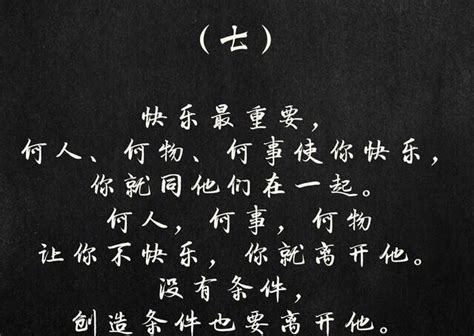 （七）
快乐最重要，
何人、何物、何事使你快乐，
你就同他们在一起。
何人，何事，何物
让你不快乐，你就离开他。
没有条件，
创造条件也要离开他。